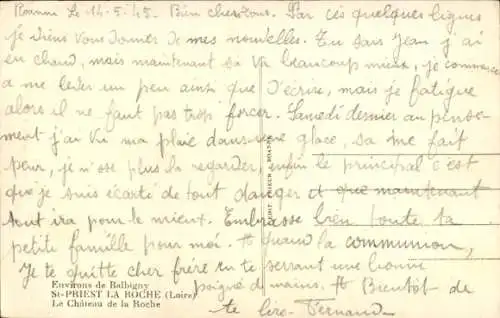 Roanne Le 14-5-45. Bien chers tous. Par ces quelques lignes
je viens vous donner de mes nouvelles. Tu sais Jean j'ai
eu chaud, mais maintenant sa va beaucoup mieux, je commence
a me lever un peu ainsi que d'ecrire, mais je fatigue
alors il ne faut pas trop forcer. Samedi dernier au panse-
ment j'ai vu ma plaie dans une glace, sa me fait
peur, je n'ose plus la regarder, enfin le principal c'est
que je suis écarté de tout danger et que maintenant
tout ira pour le mieux. Embrasse bien toute ta
petite famille pour moi. A quand la communion,
Je te quitte cher frère en te serrant une bonne
poigné de mains. A Bientôt de
te lire - Fernand
Environs de Balbigny
St-PRIEST LA ROCHE (Loire)
Le Château de la Roche